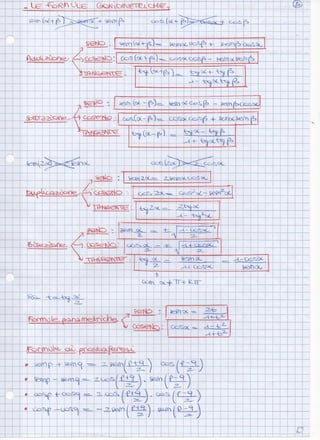 - LE FORMULE GONIOMETRICHE.
sen(α+β) senα + senβ cos(α+β) cosα + cosβ
SENO: sen(α+β) = senα cosβ + senβ cosα
Addizione COSENO: cos(α+β) = cosα cosβ - senα senβ
TANGENTE: tg(α+β) = tgα + tgβ / 1 - tgα tgβ
SENO: sen(α-β) = senα cosβ - senβ cosα
Sottrazione COSENO: cos(α-β) = cosα cosβ + senα senβ
TANGENTE tg(α-β) = tgα - tgβ / 1 + tgα tgβ
sen(2α) senα cos(2α) cosα
SENO: sen2α = 2senα cosα
Duplicazione COSENO cos2α = cos²α - sen²α
TANGENTE: tg2α = 2tgα / 1 - tg²α
SENO: sen α/2 = ± √ 1 - cosα / 2
Bisezione COSENO: cos α/2 = ± √ 1 + cosα / 2
TANGENTE tg α/2 = senα / 1 + cosα = 1 - cosα / senα
con α ≠ π + kπ
t = tg α/2
SENO: senα = 2t / 1+t²
Formule parametriche
COSENO: cosα = 1-t² / 1+t²
Formule di prostaferesi
• senp + senq = 2 sen(p+q / 2) cos(p-q / 2)
• senp - senq = 2 cos(p+q / 2) · sen(p-q / 2)
• cosp + cosq = 2 cos(p+q / 2) · cos(p-q / 2)
• cosp - cosq = - 2 sen(p+q / 2) · sen(p-q / 2)